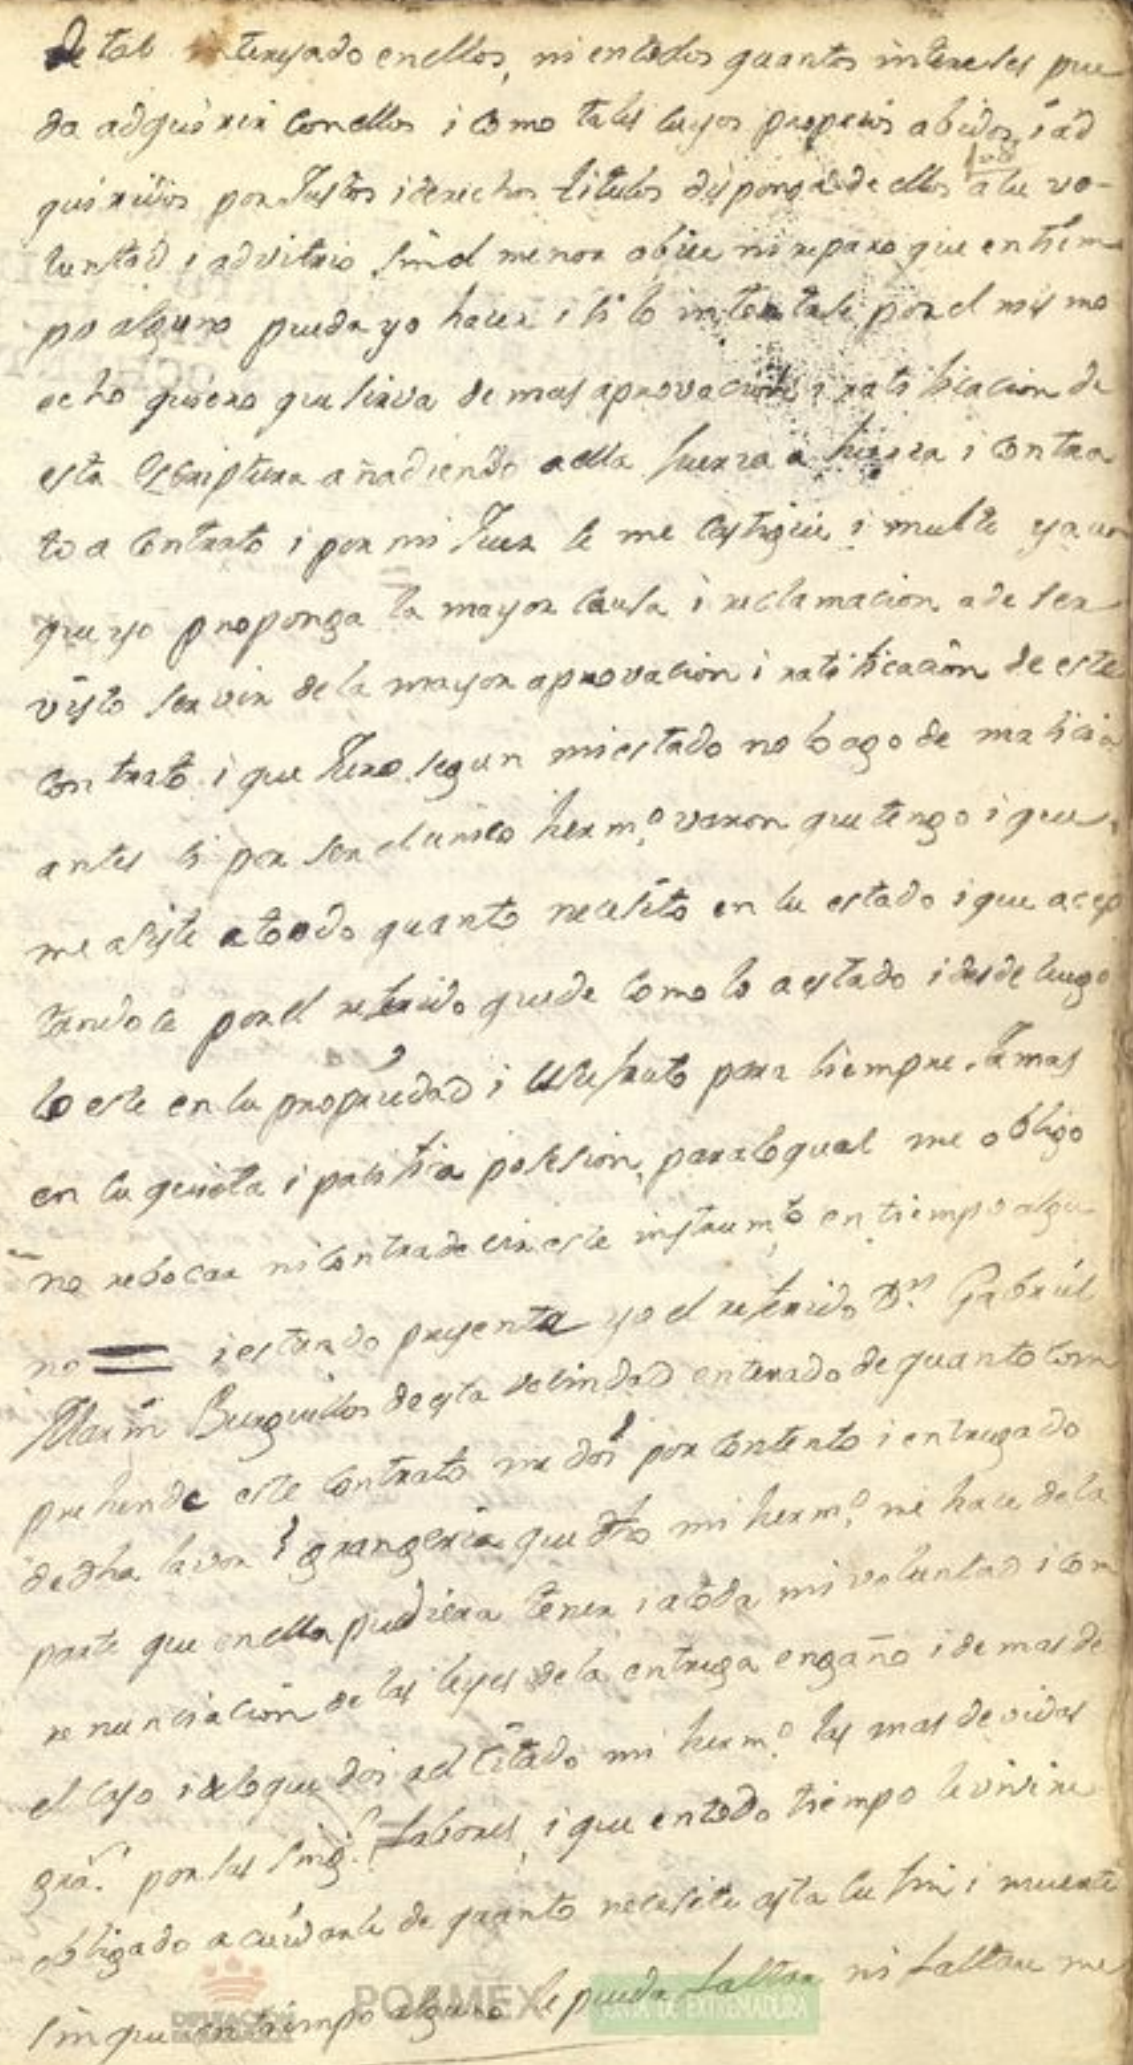 de tal interesado en ellos, ni en todos quantos intereses pue
da adquirir con ellos i como tales suyos propios abidos, i ad
quiridos por Justos i derechos titulos disponga de ellos a su vo-
luntad i advitrio sin el menor obice ni reparo que en tiem
po alguno pueda yo hacer i si lo intentase por el mismo
echo quiero que sirva de mas aprovacion i ratificacion de
esta Escriptura añadiendo a ella fuerza a fuerza i contra
to a contrato i por mi Juez se me castigue i multe ya aun
que yo proponga la mayor causa i reclamacion a de ser
visto servir de la mayor aprovacion i ratificacion de este
contrato i que Juro segun mi estado no lo ago de malicia
antes si por ser el unico herm.º varon que tengo i que
me asiste a toodo quanto necesito en su estado i que acep
tandola por el referido quede como lo a estado i desde luego
lo este en la propriedad i usufruto para siempre Jamas
en su quieta i pasifica posesion, para lo qual me obligo
no rebocar ni contradecir este instrum.to en tiempo algu
no = i estando presente yo el referido Dn. Gabriel
Marin Burguillos de esta vecindad enterado de quanto com
prehende este contrato me doi por contento i entregado
de dha lavor i grangeria que dho mi herm.º me hace de la
parte que en ella pudiera tener, i a toda mi voluntad i con
renunciacion de las leyes de la entrega engaño i demas de
el caso i de lo que doi a el citado mi herm.º las mas devidas
gra.s por sus sing.s fabores, i que en todo tiempo le vivire
obligado a cuidarle de quanto necesite asta su fin i muerte
sin que en tiempo alguno le pueda faltar ni faltare me
DIPUTACIÓN DE BADAJOZ
POAMEX
JUNTA DE EXTREMADURA